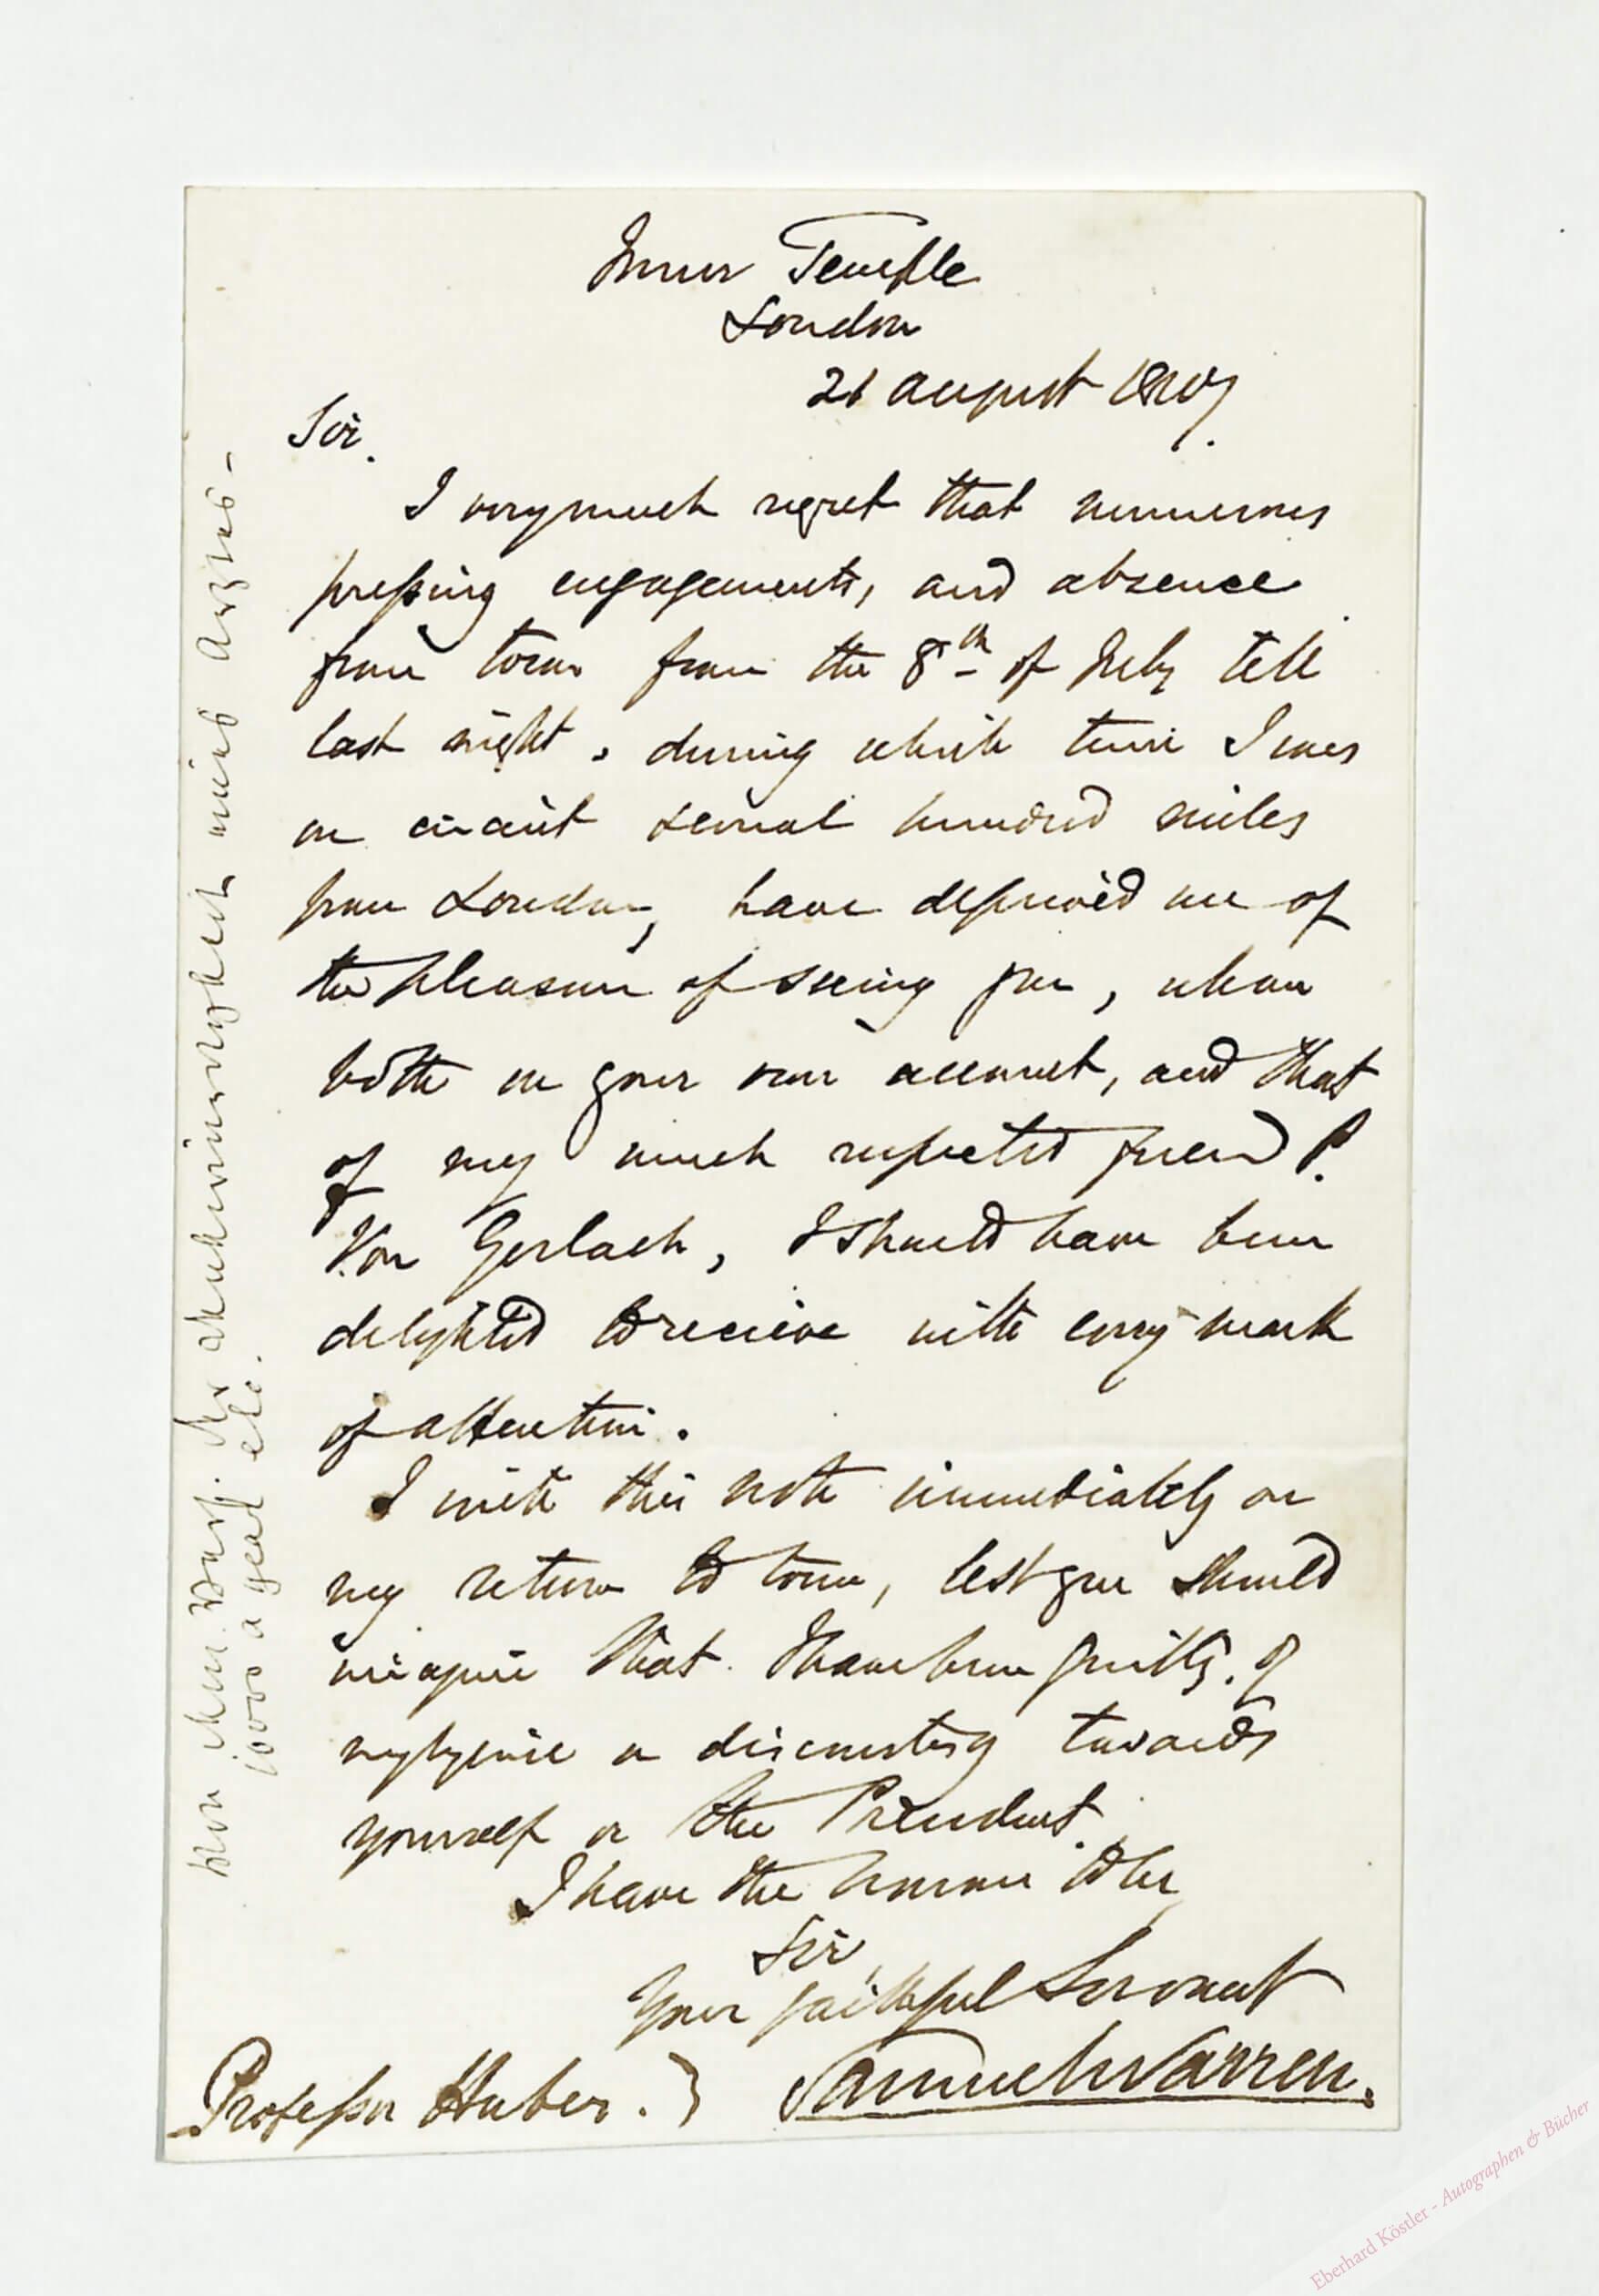 Inner Temple
London
21 August
Sir.
I very much regret that numerous
pressing engagements, and absence
from town from the 8th of July till
last night, during which time I was
on circuit several hundred miles
from London, have deprived me of
the pleasure of seeing you, whom
both on your own account, and that
of my much respected friend P.
Von Gerlach, I should have been
delighted to receive with every mark
of attention.
I write this note immediately on
my return to town, lest you should
imagine that I have been guilty of
negligence or discourtesy towards
yourself or the President.
I have the honour to be
Sir,
Your faithful Servant
Samuel Warren.
Professor Huber. }
Von dem Verf. der Denkwürdigkeit eines Arztes -
10000 a year etc.
Eberhard Köstler - Autographen & Bücher